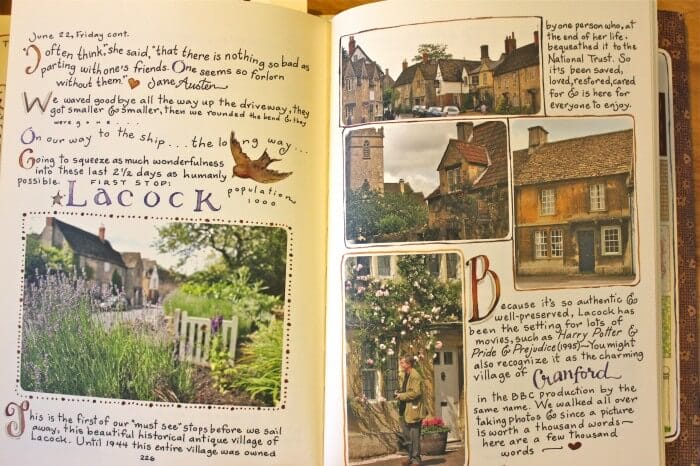 June 22, Friday cont.
"I often think," she said, "that there is nothing so bad as
parting with one's friends. One seems so forlorn
without them." Jane Austen
We waved goodbye all the way up the driveway, they
got smaller & smaller, then we rounded the bend & they
were gone....
On our way to the ship... the long way...
Going to squeeze as much wonderfulness
into these last 2½ days as humanly
possible. FIRST STOP:
LACOCK
population
1000
This is the first of our "must see" stops before we sail
away, this beautiful historical antique village of
Lacock. Until 1944 this entire village was owned
226
by one person who, at
the end of her life,
bequeathed it to the
National Trust. So
it's been saved,
loved, restored, cared
for & is here for
everyone to enjoy.
Because it's so authentic &
well-preserved, Lacock has
been the setting for lots of
movies, such as Harry Potter &
Pride & Prejudice (1995)~You might
also recognize it as the charming
village of Cranford
in the BBC production by the
same name. We walked all over
taking photos & since a picture
is worth a thousand words~
here are a few thousand
words ~